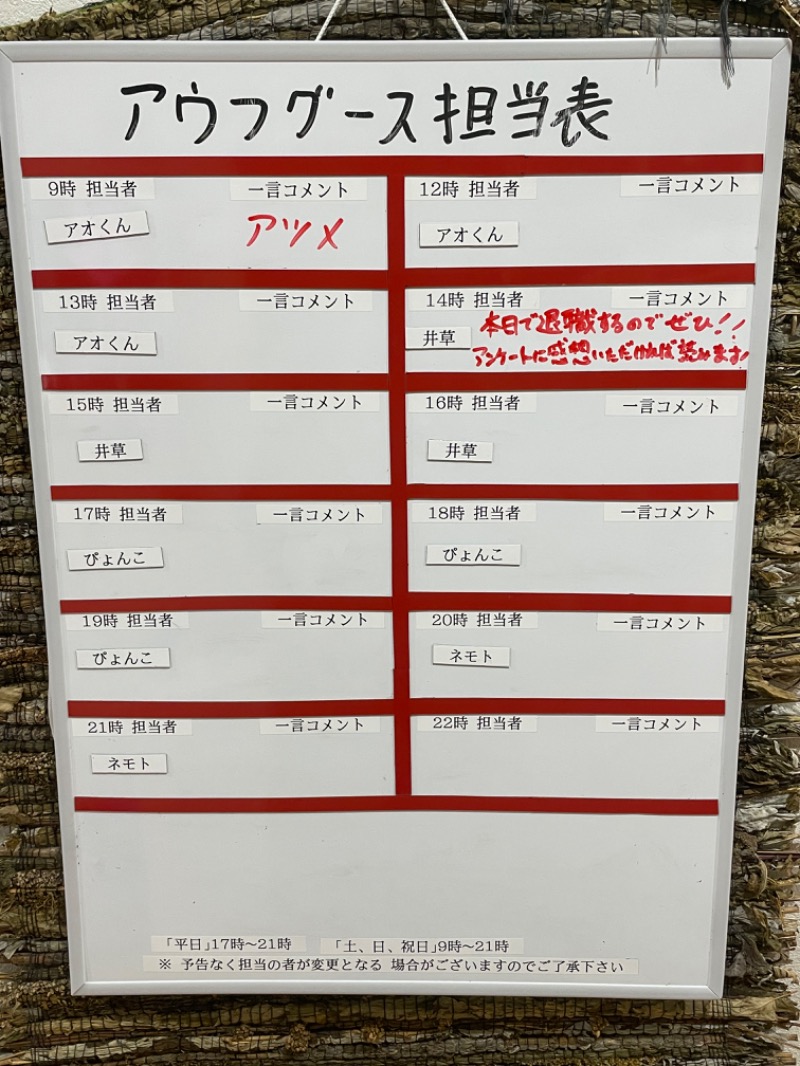 アウフグース担当表
9時 担当者 一言コメント
アオくん アツメ
12時 担当者 一言コメント
アオくん
13時 担当者 一言コメント
アオくん
14時 担当者 一言コメント
井草 本日で退職するのでぜひ!!
アンケートに感想いただければ読みます!
15時 担当者 一言コメント
井草
16時 担当者 一言コメント
井草
17時 担当者 一言コメント
ぴょんこ
18時 担当者 一言コメント
ぴょんこ
19時 担当者 一言コメント
ぴょんこ
20時 担当者 一言コメント
ネモト
21時 担当者 一言コメント
ネモト
22時 担当者 一言コメント
「平日」17時～21時 「土、日、祝日」9時～21時
※ 予告なく担当の者が変更となる 場合がございますのでご了承下さい